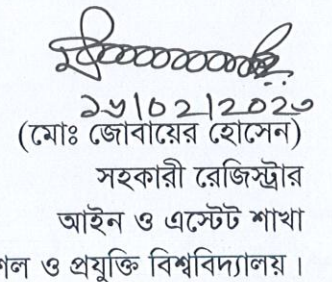 (মোঃ জোবায়ের হোসেন)
সহকারী রেজিস্ট্রার
আইন ও এস্টেট শাখা
ও প্রযুক্তি বিশ্ববিদ্যালয়।